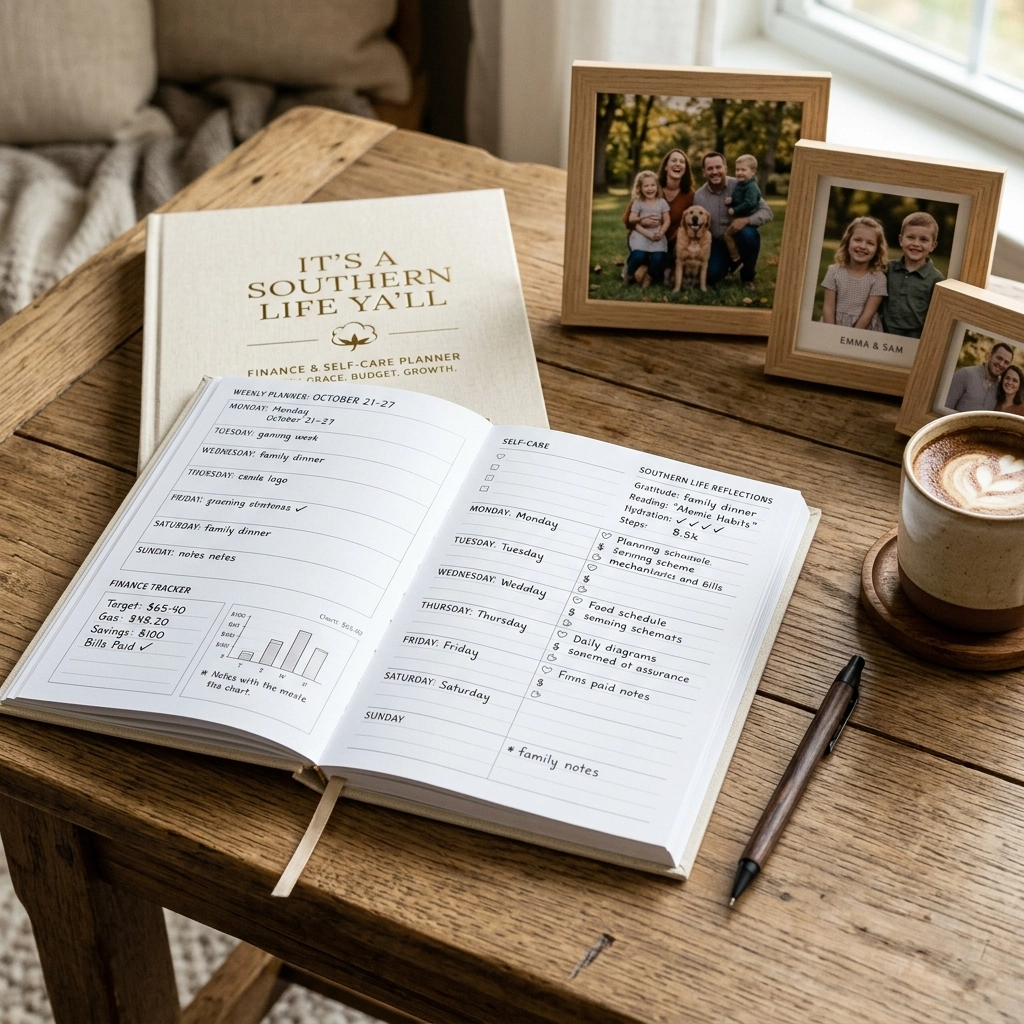 IT'S A
SOUTHERN
LIFE YA'LL
FINANCE & SELF-CARE PLANNER
GRACE. BUDGET. GROWTH.
WEEKLY PLANNER: OCTOBER 21-27
MONDAY: Monday
October 21-27
TUESDAY: gaming week
WEDNESDAY: family dinner
THOESDAY: cenile logo
FRIDAY: ✓
SATURDAY: family dinner
SUNDAY: notes netes
FINANCE TRACKER
Target: $65-40
Gas: $48.20
Savings: $100
Bills Paid ✓
* Notes with the meale
the chart.
SELF-CARE
MONDAY: Monday
TUESDAY: Tuesday
WEDNESDAY: Wedday
THURSDAY: Thursday
FRIDAY: Friday
SATURDAY: Saturday
SUNDAY
SOUTHERN LIFE REFLECTIONS
Gratitude: family dinner
Reading: "Atemie Habits"
Hydration: ✓ ✓ ✓ ✓
Steps: 8.5k
Planning
scheme
and Bills
Food schedule
schemats
Daily diagrams
of assurance
Firns paid notes
* family notes
EMMA & SAM